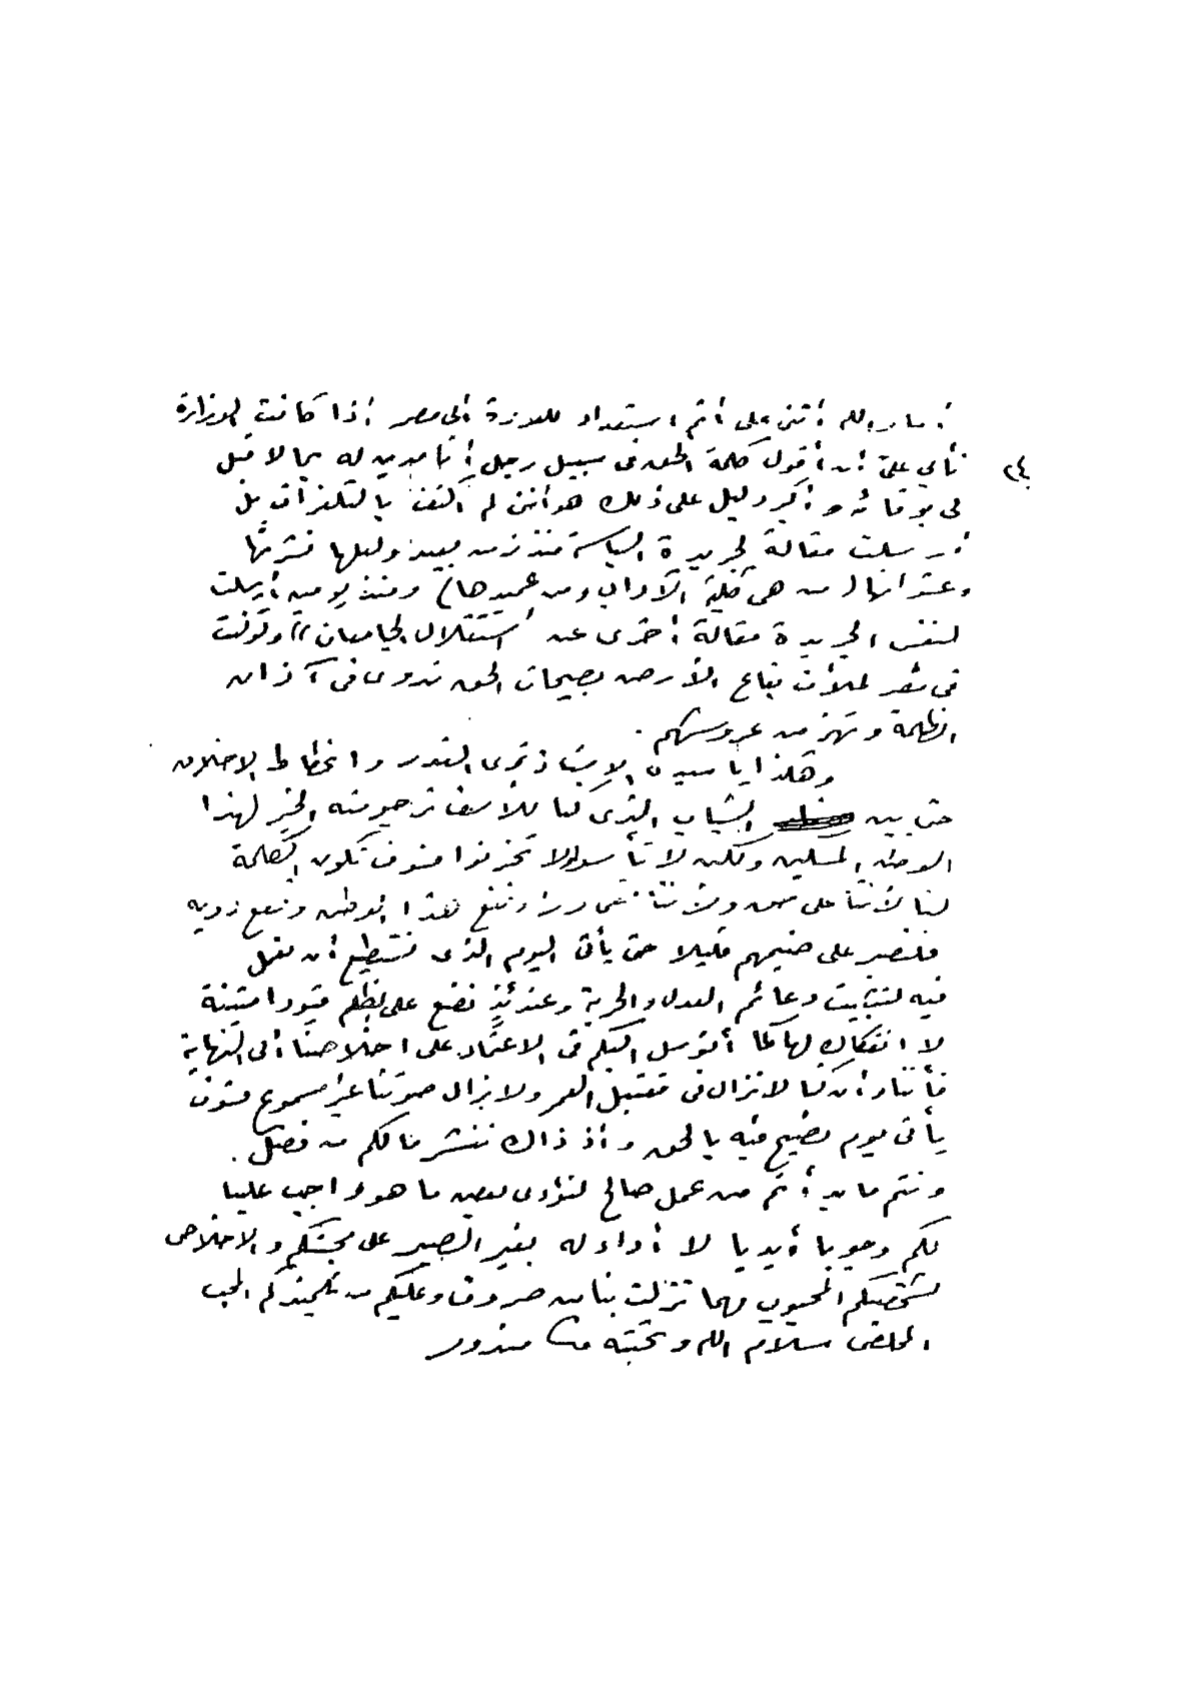 أما والله أنني على أتم استعداد للعودة الى مصر أذا كانت الوزارة
تأبى علىّ أن أقول كلمة الحق فى سبيل رجل أنا مدين له بما لا قبل
٢٤
لى بوفائه وأكبر دليل على ذلك هو أننى لم أكتف بالتلغراف بل
أرسلت مقالة لجريدة السياسة منذ زمن بعيد ولعلها نشرتها
وعنوانها (من هى كلية الآداب ومن عميدها) ومنذ يومين أرسلت
لنفس الجريدة مقالة أخرى عن "استقلال الجامعات" ولو كنت
فى مصر لملأت بقاع الأرض بصيحات الحق تدوى فى آذان
الظلمة وتهز من عروشهم.
وهكذا يا سيدى الاستاذ ترى الغدر وانحطاط الاخلاق
حتى بين الشباب الذى كنا للأسف نرجو منه الخير لهذا
الوطن المسكين ولكن لا تيأسوا ولا تحزنوا فسوف تكون الكلمة
لنا لأننا على حق ولأننا نبغى رفع هذا الوطن ونفع ذويه
فلنصبر على ضيمهم قليلا حتى يأتى اليوم الذى نستطيع أن نعمل
فيه لتثبيت دعائم العدل والحرية وعندئذٍ نضع على الظلم قيودا متينة
لا انفكاك لها كما أتوسل اليكم فى الاعتماد على اخلاصنا الى النهاية
فأننا وأن كنا لا نزال فى مقتبل العمر ولا يزال صوتنا غير مسموع فسوف
يأتى يوم نصيح فيه بالحق وأذ ذاك ننشر مالكم من فضل.
ونتم ما بدأتم من عمل صالح لنؤدى بعض ما هو واجب علينا
لكم وجوبا أبديا لا أداء له بغير الصبر على محبتكم والاخلاص
لشخصكم المحبوب مهما تنزلت بنا من صروف وعليكم من تلميذكم المحب
المخلص سلام الله وتحيته مندور